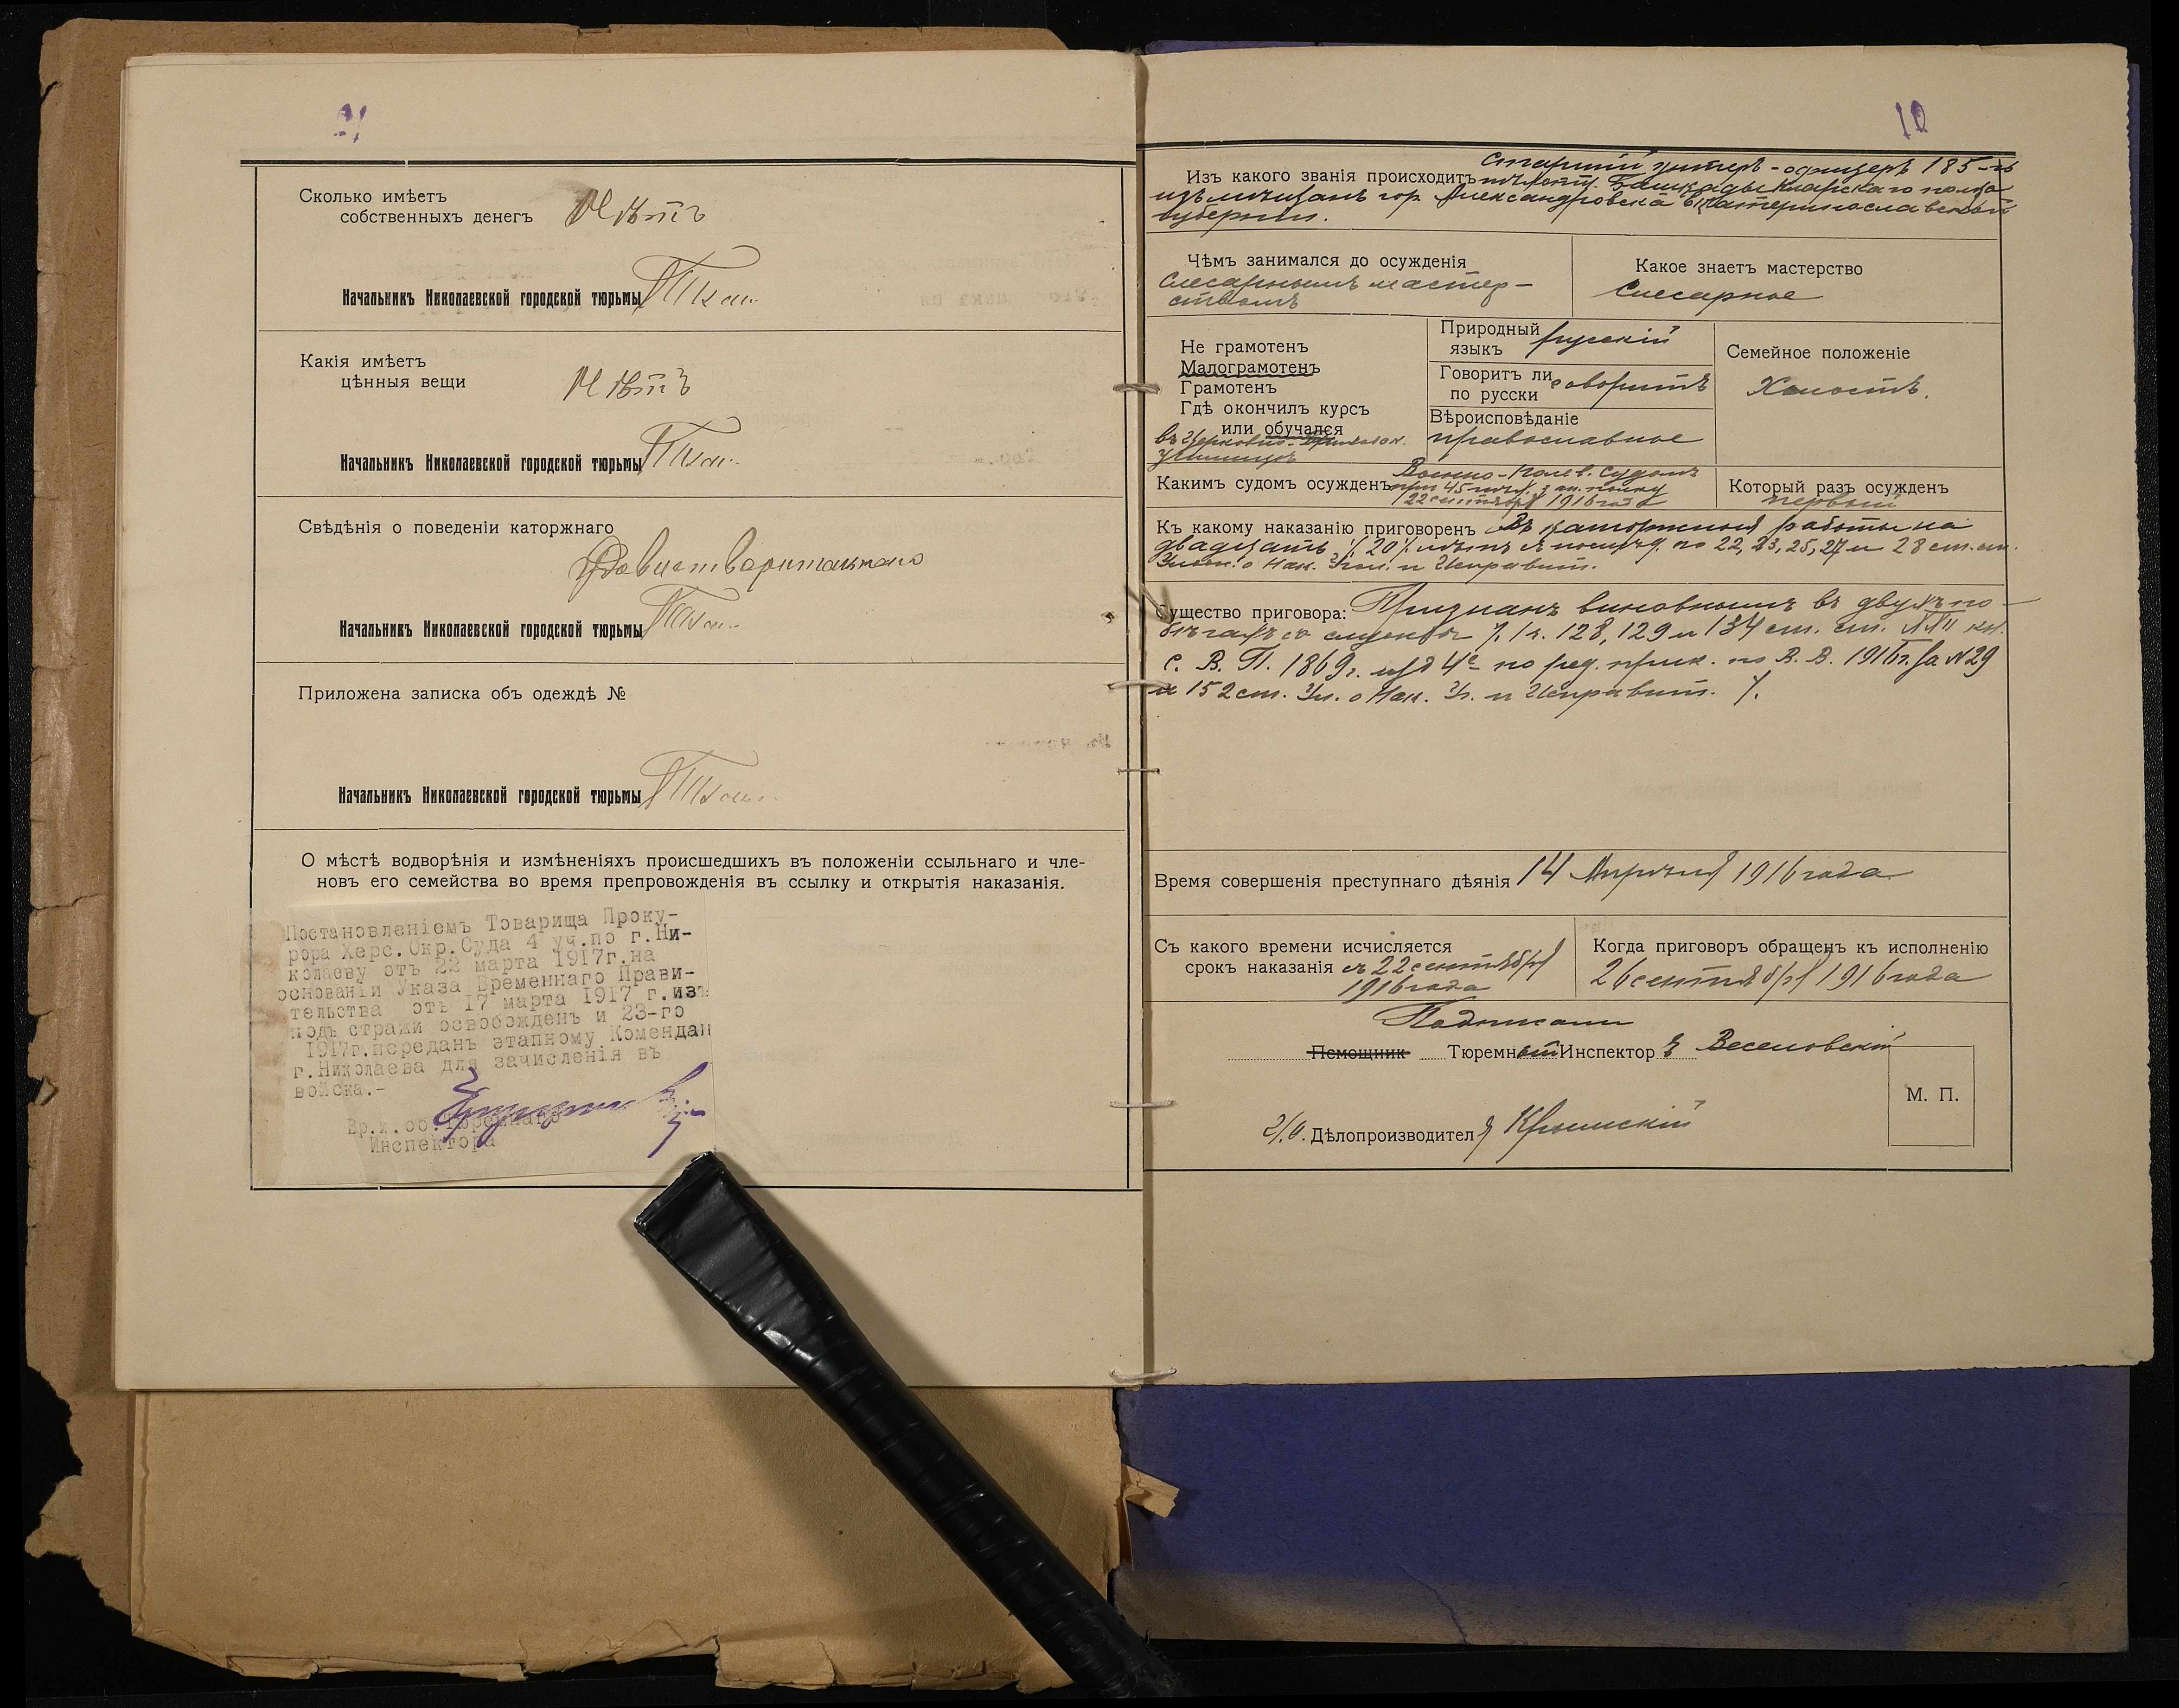 Сколько имѣетъ
собственныхъ денегъ Нѣтъ
Начальникъ Николаевской городской тюрьмы
Какія имѣетъ
цѣнныя вещи Нѣтъ
Начальникъ Николаевской городской тюрьмы
Свѣдѣнія о поведеніи каторжнаго
Удовистворительнаго
Начальникъ Николаевской городской тюрьмы
Приложена записка объ одеждѣ №
Начальникъ Николаевской городской тюрьмы
О мѣстѣ водворѣнія и измѣненіяхъ происшедшихъ въ положеніи ссыльнаго и чле-
новъ его семейства во время препровожденія въ ссылку и открытія наказанія.
Постановленіемъ Товарища Проку-
рора Херс.Окр.Суда 4 уч.по г.Ни-
колаеву отъ 22 марта 1917г.на
основаніи Указа Временнаго Прави-
тельства отъ 17 марта 1917 г.изъ
подъ стражи освобожденъ и 23-го
1917г.переданъ этапному Комендан
г.Николаева для зачисленія въ
войска.-
Вр.и.об.Тюремнаго
Инспектора
10
Старшій унтеръ-офицеръ 185-го
Изъ какого званія происходитъ пѣхотн. Башкадыкларскаго полка
изъ мѣщанъ гор. Александровска Екатеринославской
губерніи.
Чѣмъ занимался до осужденія
Слесарнымъ мастер-
ствомъ
Какое знаетъ мастерство
Слесарное
Не грамотенъ
Малограмотенъ
Грамотенъ
Гдѣ окончилъ курсъ
или обучался
въ Церковно-приходск.
училищѣ
Природный
языкъ русскій
Говоритъ ли
по русски говоритъ
Вѣроисповѣданіе
православное
Семейное положеніе
Холостъ.
Какимъ судомъ осужденъ Военно-полев. судомъ
при 45 пѣх. з ап. полку
22 сентября 1916 года
Который разъ осужденъ
первый
Къ какому наказанію приговоренъ Въ каторжныя работы на
двадцать /20/ лѣтъ съ послѣд. по 22, 23, 25, 27 и 28 ст. ст.
Улож. о Нак. Угол. и Исправит.
Существо приговора: Признанъ виновнымъ въ двухъ по-
бѣгахъ со службы /. 1 ч. 128, 129 и 134 ст. ст. XXII кн.
С. В. П. 1869 г. изд 4е по ред. прик. по В. В. 1916 г. за №29
и 152 ст. Ул. о Нак. Уг. и Исправит. /.
Время совершенія преступнаго дѣянія 14 Апрѣля 1916 года
Съ какого времени исчисляется
срокъ наказанія съ 22 сентября
1916 года
Когда приговоръ обращенъ къ исполненію
26 сентября 1916 года
Подписали
Помощник Тюремный Инспекторъ Веселовскій
М. П.
И/о. Дѣлопроизводителя Крымскій